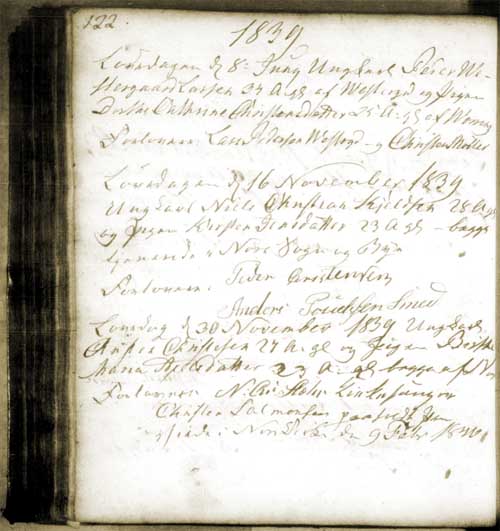 122.
1839
Løverdagen d 8: Juny Ungkarl Peder We-
stergaard Larsen 34 A. gl af Westergd og Pigen
Dorthe Cathrine Christensdatter 25 A. gl af
Forlovere: Lars Pedersen Westergd og Christen Møller
Løverdagen d 16 November 1839
Ungkarl Niels Christian Kjeldsen 28 A. gl
og Pigen Kirsten Jensdatter 23 A. gl - begge
tjenende i Nors Sogn og Bye
Forlovere: Peder Christensen
Anders Poulsen Smed
Løverdag d 30 November 1839 Ungkarl
Christensen 27 A. gl og Pigen Birthe
Maria Kjeldsdatter 23 A. gl begge af
Forlovere: Niels
Christen Salmonsen
Nors d. 9 Febr 1840